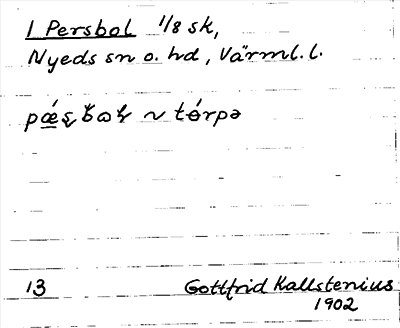 1 Persbol 1/8 sk,
Nyeds sn o. hd, Värml. l.
~ tórpə
13 Gottfrid Kallstenius
1902